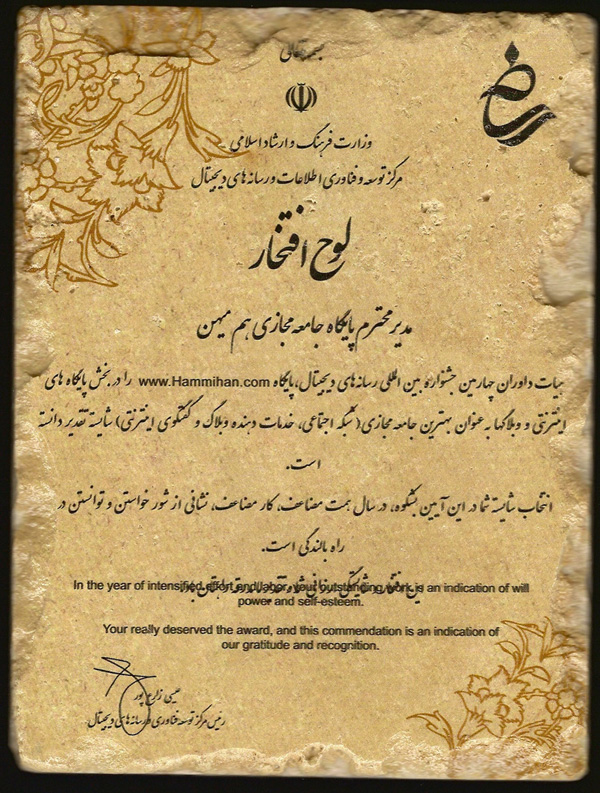 بسمه تعالی
وزارت فرهنگ و ارشاد اسلامی
مرکز توسعه و فناوری اطلاعات و رسانه های دیجیتال
لوح افتخار
مدیر محترم پایگاه جامعه مجازی هم میهن
هیات داوران چهارمین جشنواره بین المللی رسانه های دیجیتال، پایگاه www.Hammihan.com را در بخش پایگاه های
اینترنتی و وبلاگها به عنوان بهترین جامعه مجازی (شبکه اجتماعی، خدمات دهنده وبلاگ و گفتگوی اینترنتی) شایسته تقدیر دانسته
است.
انتخاب شایسته شما در این آیین بشکوه، در سال همت مضاعف، کار مضاعف، نشانی از شور خواستن و توانستن در
راه بالندگی است.
In the year of intensified effort and labor, your outstanding work is an indication of will
power and self-esteem.
Your really deserved the award, and this commendation is an indication of
our gratitude and recognition.
عیسی زارع پور
رئیس مرکز توسعه فناوری و رسانه های دیجیتال